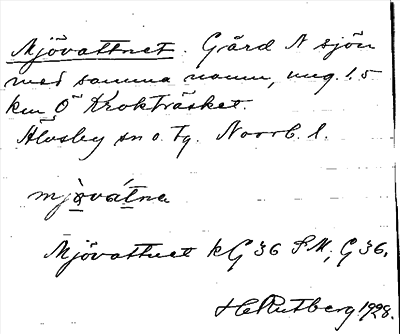 Mjövattnet. Gård N sjön
med samma namn, ung. 1.5
km Ö Krokträsket.
Älvsby sn o. tg. Norrb. l.
mjòvátna
Mjövattnet kG 36 SM; G 36.
H. Rutberg 1928.